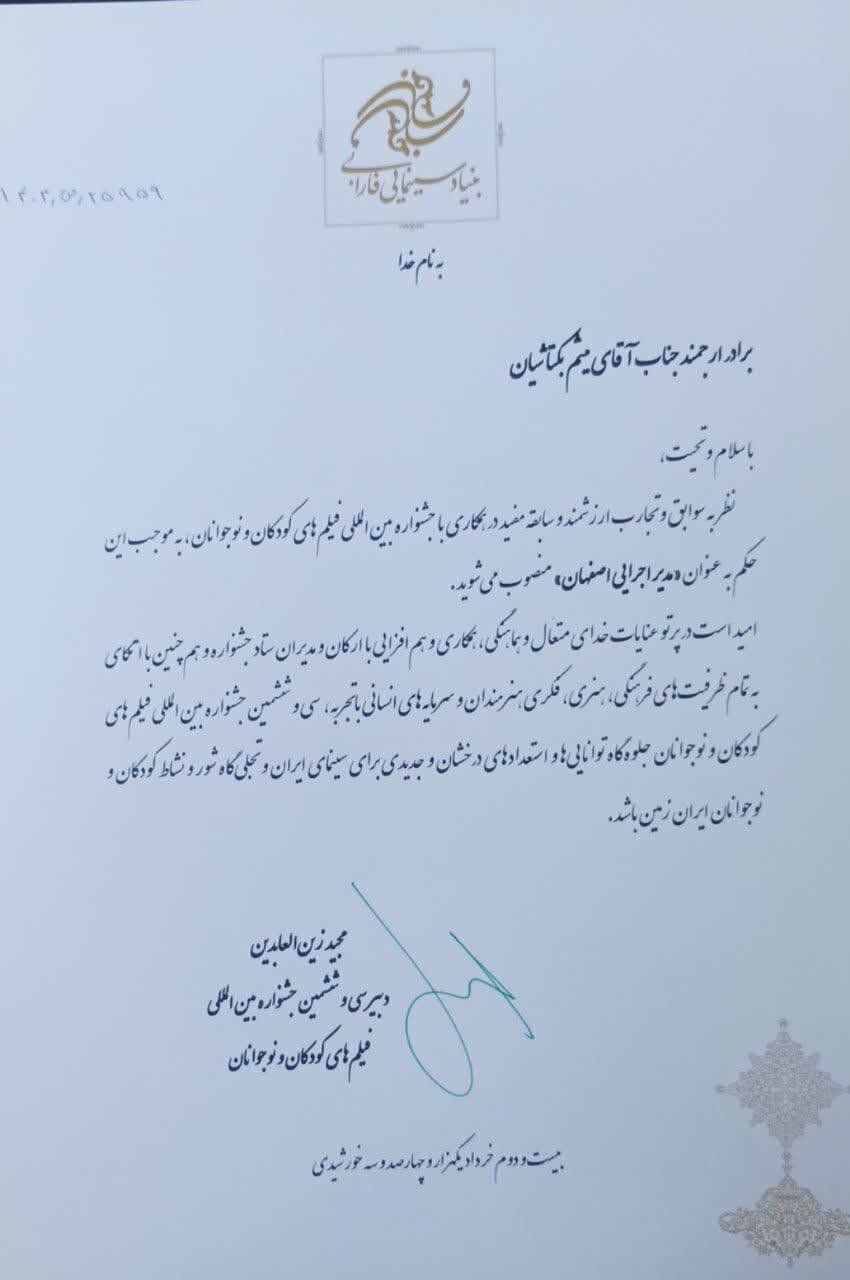 بنیاد سینمایی فارابی
به نام خدا
برادر ارجمند جناب آقای میثم بکتاشیان
با سلام و تحیت،
نظر به سوابق و تجارب ارزشمند و سابقه مفید در همکاری با جشنواره بین المللی فیلم های کودکان و نوجوانان، به موجب این
حکم به عنوان «مدیر اجرایی اصفهان» منصوب می شوید.
امید است در پرتو عنایات خدای متعال و هماهنگی، همکاری و هم افزایی با ارکان و مدیران ستاد جشنواره و هم چنین با اتکای
به تمام ظرفیت های فرهنگی، هنری، فکری هنرمندان و سرمایه های انسانی با تجربه، سی و ششمین جشنواره بین المللی فیلم های
کودکان و نوجوانان جلوه گاه توانایی ها و استعدادهای درخشان و جدیدی برای سینمای ایران و تجلی گاه شور و نشاط کودکان و
نوجوانان ایران زمین باشد.
مجید زین العابدین
دبیر سی و ششمین جشنواره بین المللی
فیلم های کودکان و نوجوانان
بیست و دوم خرداد یکهزار و چهارصد و سه خورشیدی